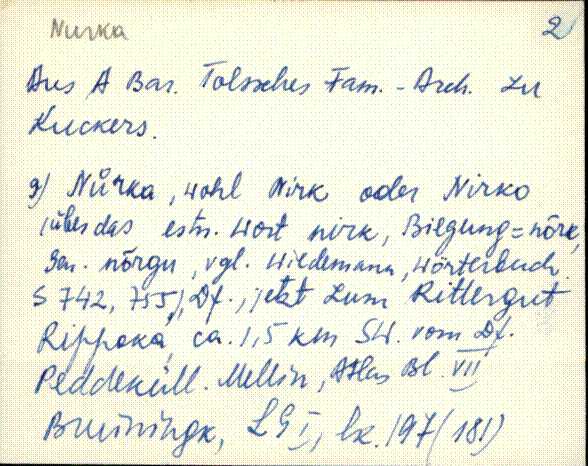 Nurka 2
Aus A Bar. Tolssches Fam. - Arch. zu
Kuckers.
g) Nůrka, wohl Nirk oder Nirko
(über das estn. Wort nirk, Biegung = nõrk,
Gen. nõrgu, vgl. Wiedemann, Wörterbuch
S 742, 755), Df., jetzt zum Rittergut
Rippoka, ca. 1,5 km SW. vom Df.
Peddeküll. Mellin, Atlas Bl. VII
Bruiningk, LG I, lk. 197 (181)